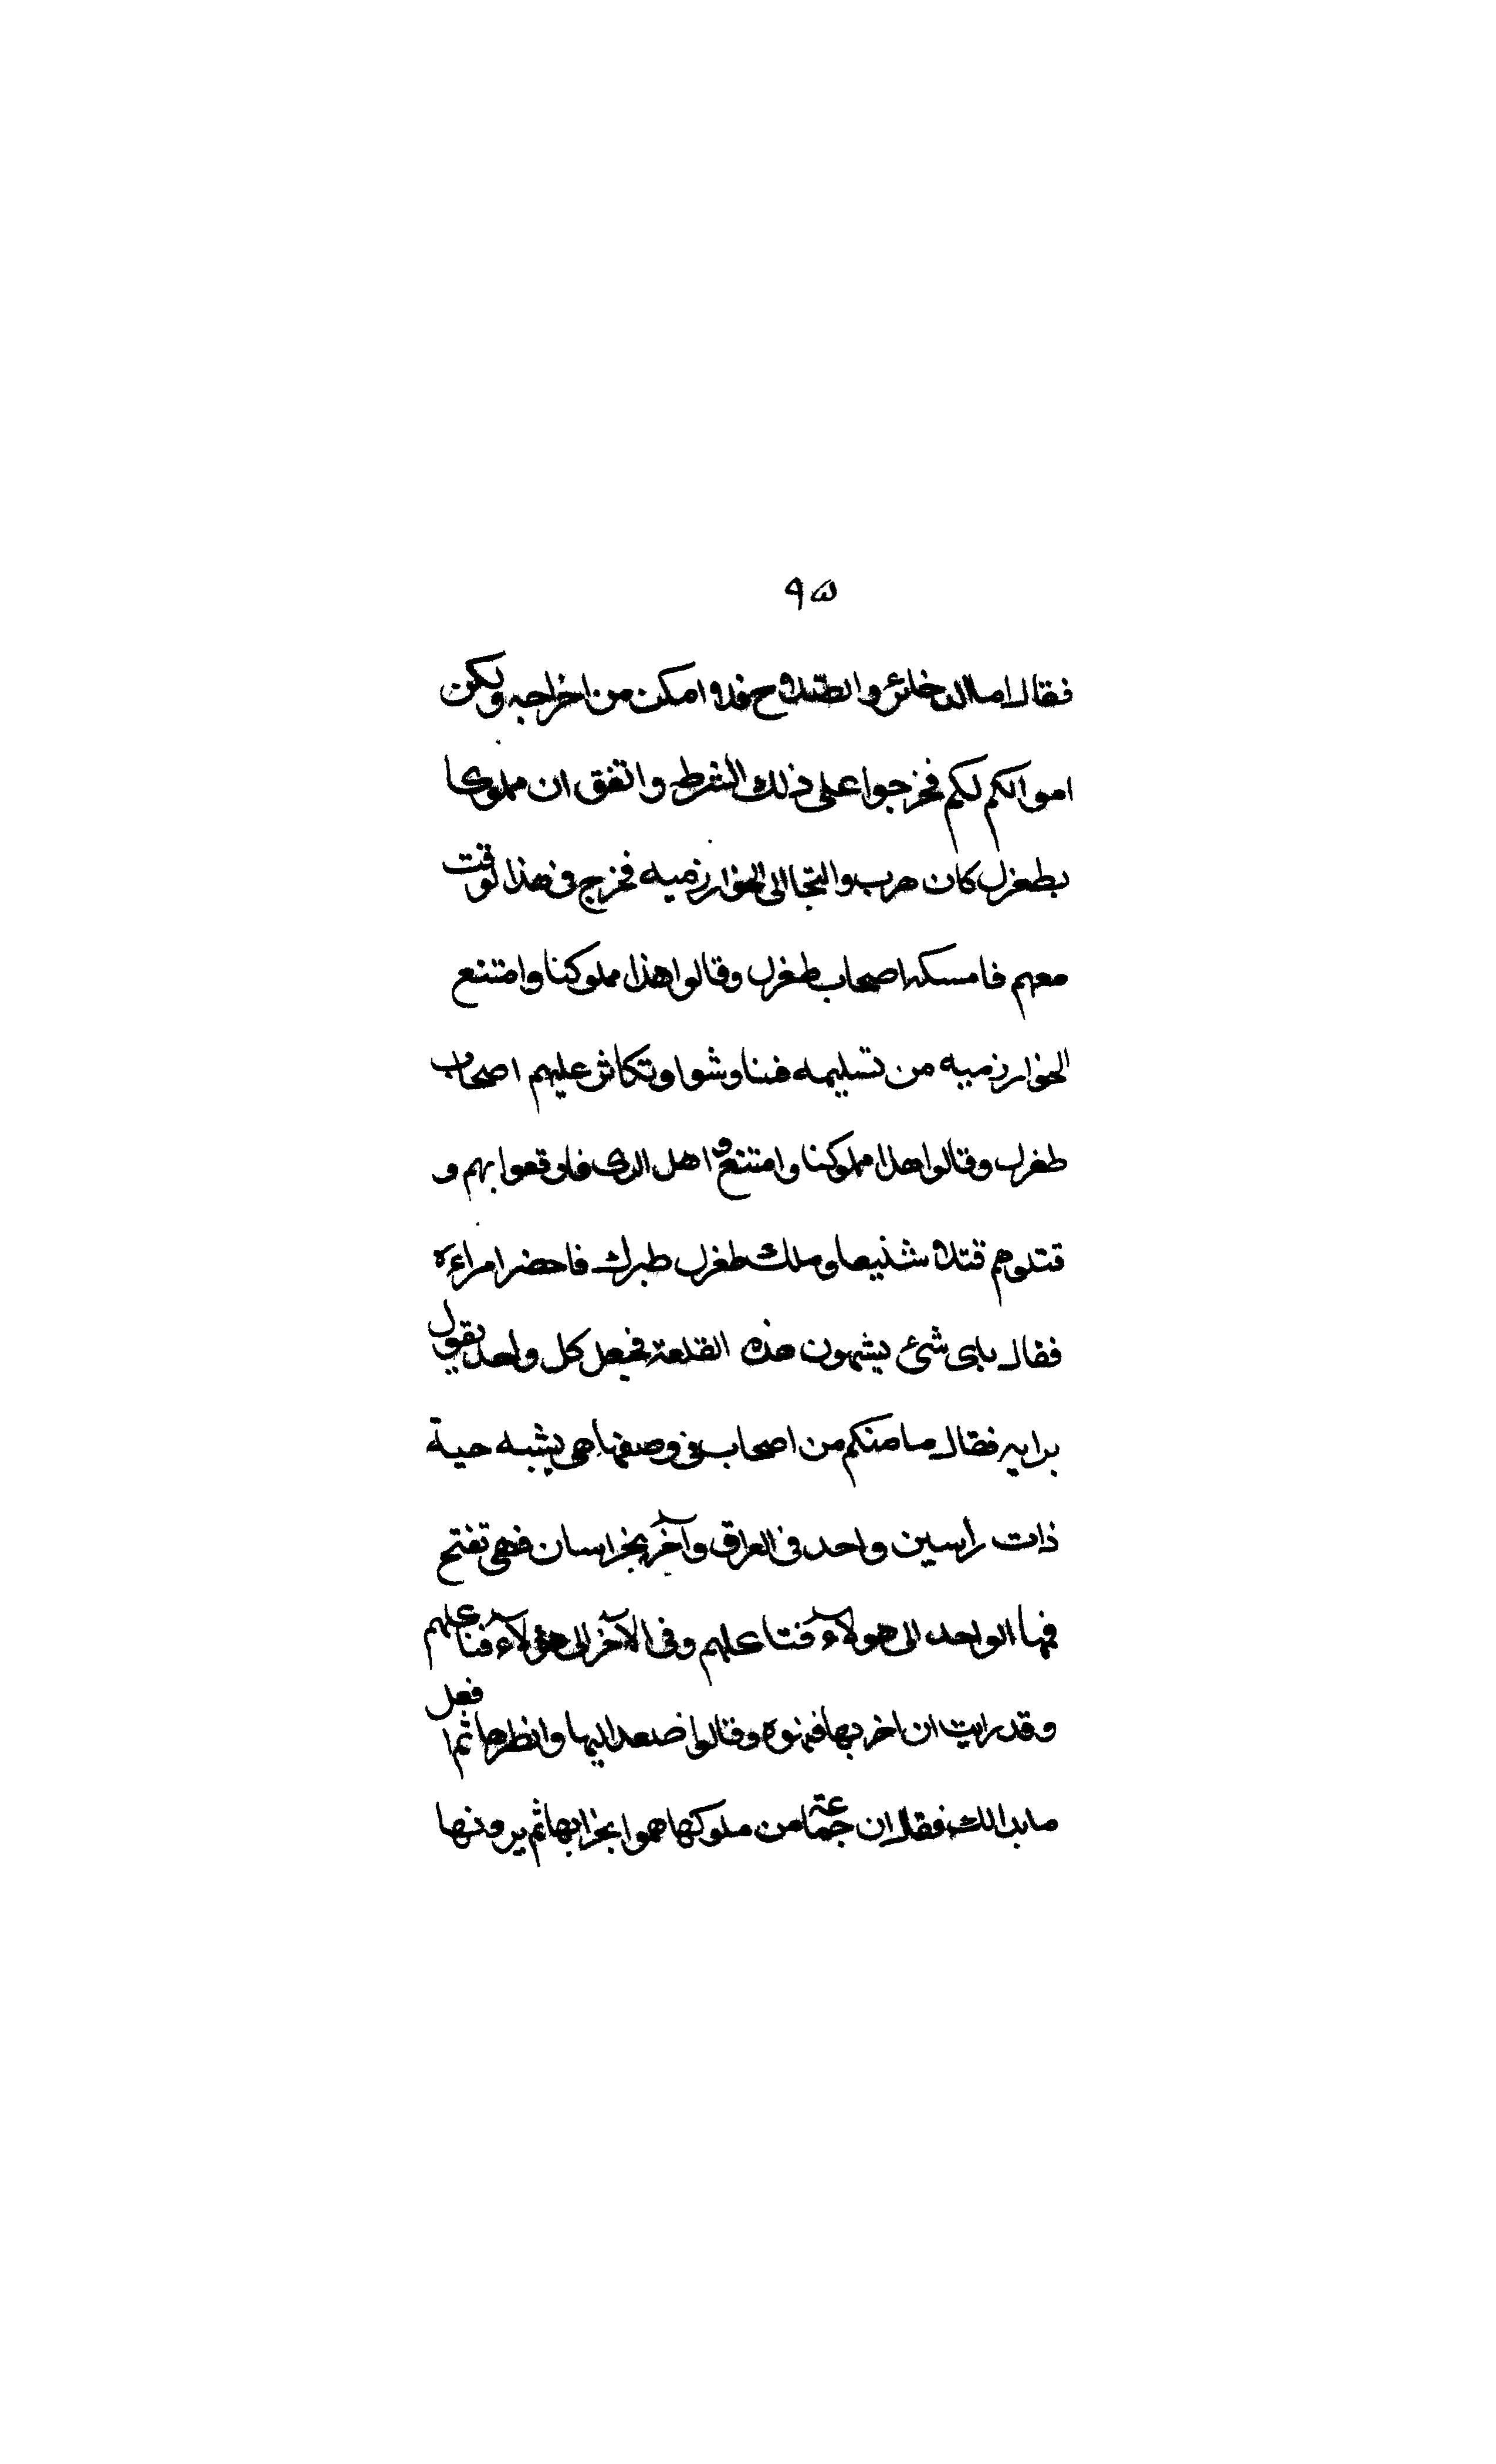 ٩٥
فقال اما الذخائر والسلاح فلا امكن من اخراجه ولكن
اموالكم لكم فخرجوا على ذلك الشرط واتفق ان مملوكا
بطغرل كان هرب والتجا الى الخوارزميه فخرج فى هذا لوقت
معهم فامسكه اصحاب طغرل وقالوا هذا مملوكنا وامتنع
الخوارزميه من تسليمه فتناوشوا وتكاثر عليهم اصحاب
طغرل وقالوا هذا مملوكنا وامتنع و اهل الرى فاوقعوا بهم و
قتلوهم قتلا شنيعا وملك طغرل طبرك فاحضر امراءه
فقال باى شئ يشبهون هذه القلعة فجعل كل واحد يقول
برايه فقال ما منكم من اصحاب فى وصفها هى يشبه حية
ذات راسين واحد فى العراق وآخر بخراسان فهى تفتح
فمها الواحد الى هولآء فتا عليهم وفى الآخر الى هؤلآء فتا عليهم
وقد رايت ان اخربها فنهوه وقالوا ضعد اليها وانظرها ثم افعل
ما بدا لك فقال ان جماعة من ملوكها هموا بخرابها ثم يرونها